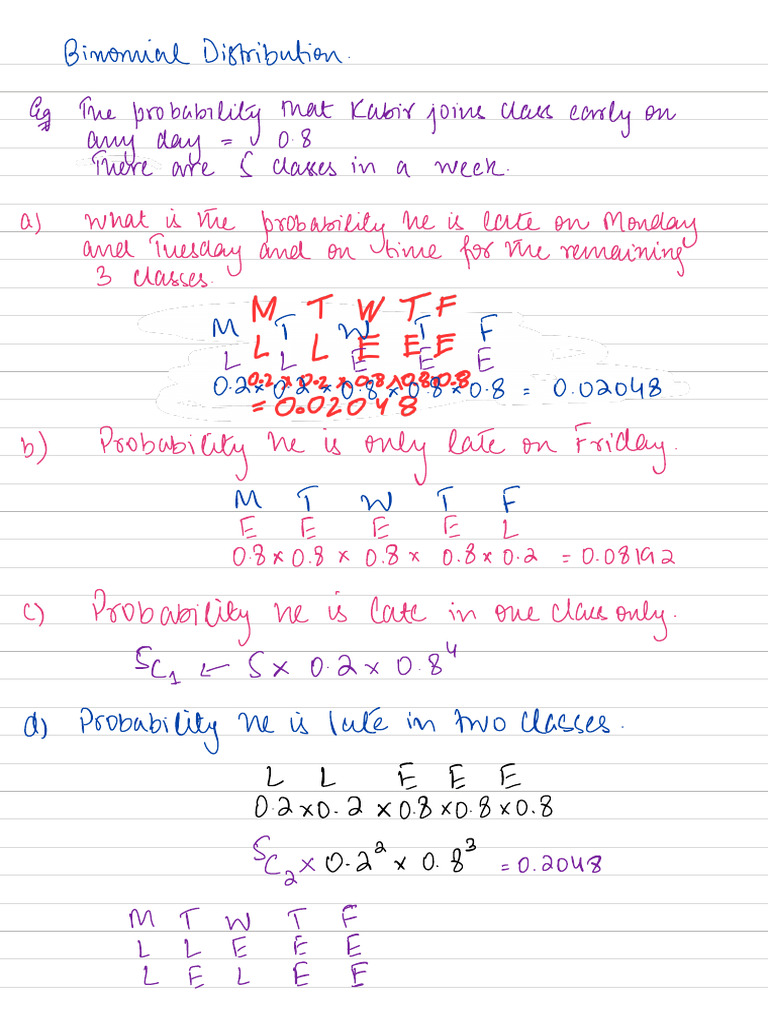 Binomial Distribution.
Eg The probability that Kabir joins class early on
any day = 0.8
There are 5 classes in a week.
a) What is the probability he is late on Monday
and Tuesday and on time for the remaining
3 classes.
M T W T F
M T W T F
L L E E E
L L E E E
0.2 x 0.2 x 0.8 x 0.8 x 0.8
0.2 x 0.2 x 0.8 x 0.8 x 0.8 = 0.02048
= 0.02048
b) Probability he is only late on Friday.
M T W T F
E E E E L
0.8 x 0.8 x 0.8 x 0.8 x 0.2 = 0.08192
c) Probability he is late in one class only.
⁵C₁ ← 5 x 0.2 x 0.8⁴
d) Probability he is late in two classes.
L L E E E
0.2 x 0.2 x 0.8 x 0.8 x 0.8
⁵C₂ x 0.2² x 0.8³ = 0.2048
M T W T F
L L E E E
L E L E E